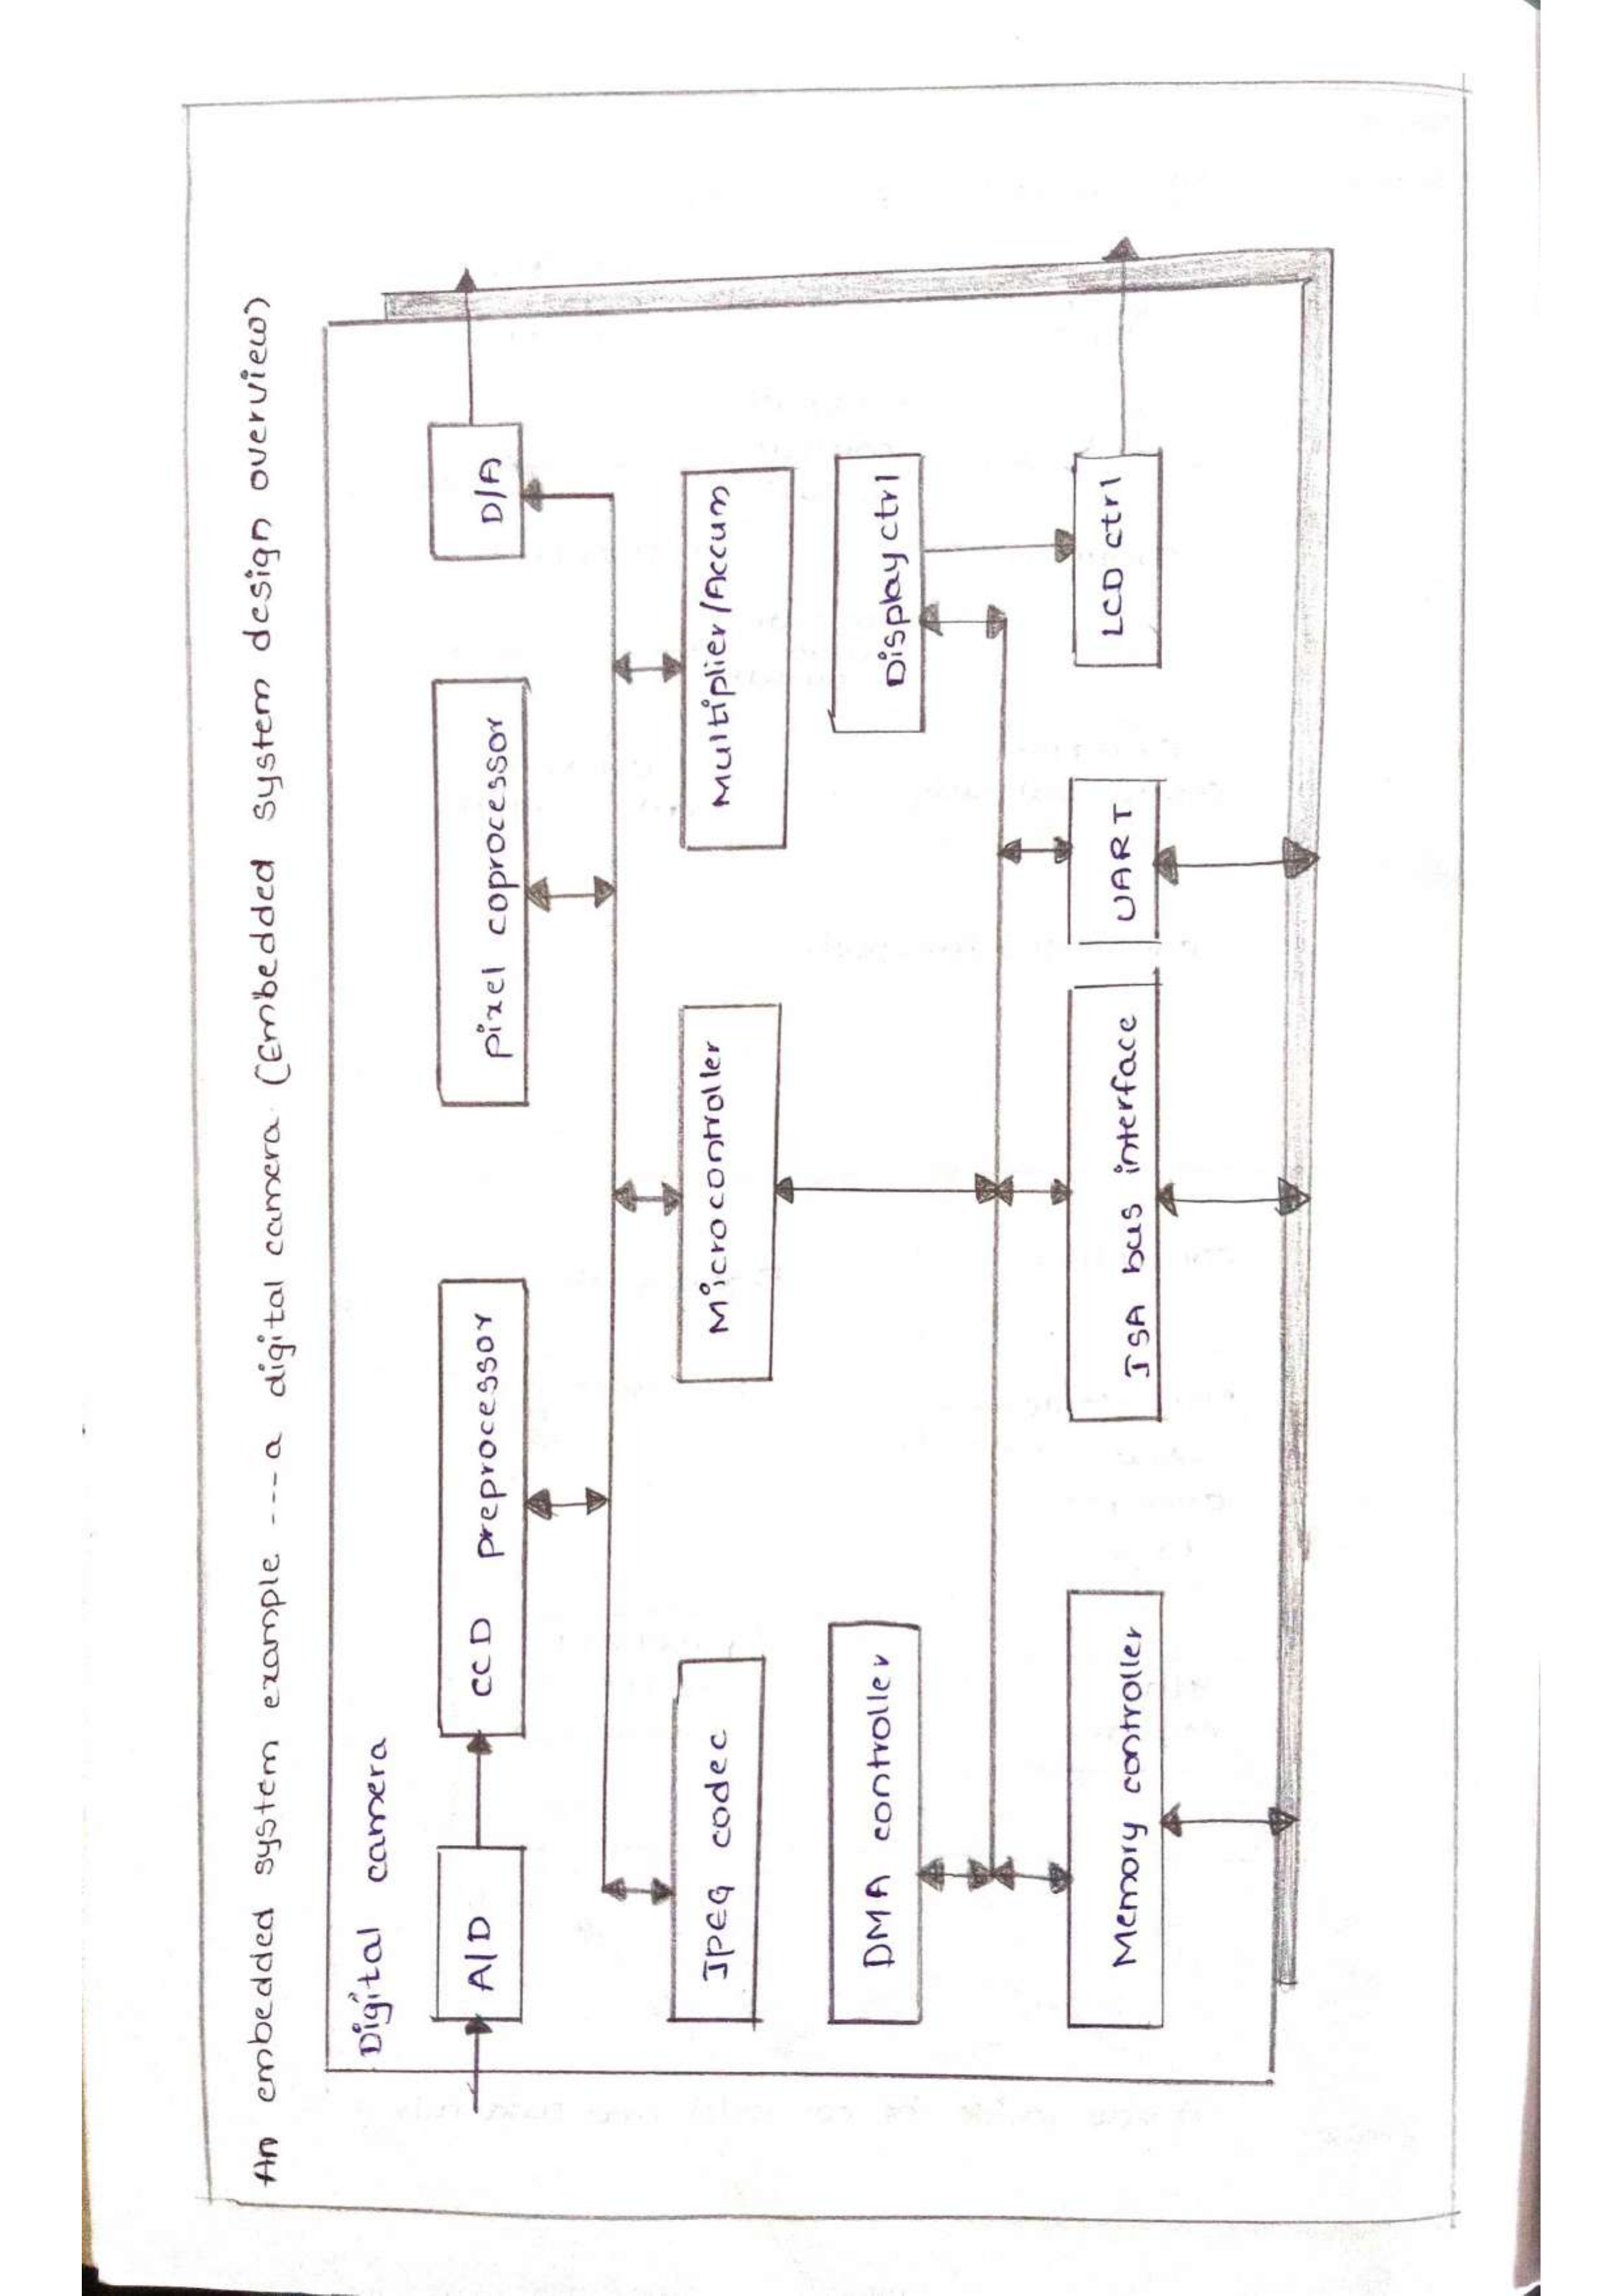 An embedded system example ---a digital camera (Embedded system design overview)
Digital camera
A/D
CCD preprocessor
Pixel coprocessor
D/A
JPEG codec
Microcontroller
Multiplier/Accum
DMA controller
Display ctrl
Memory controller
ISA bus interface
UART
LCD ctrl